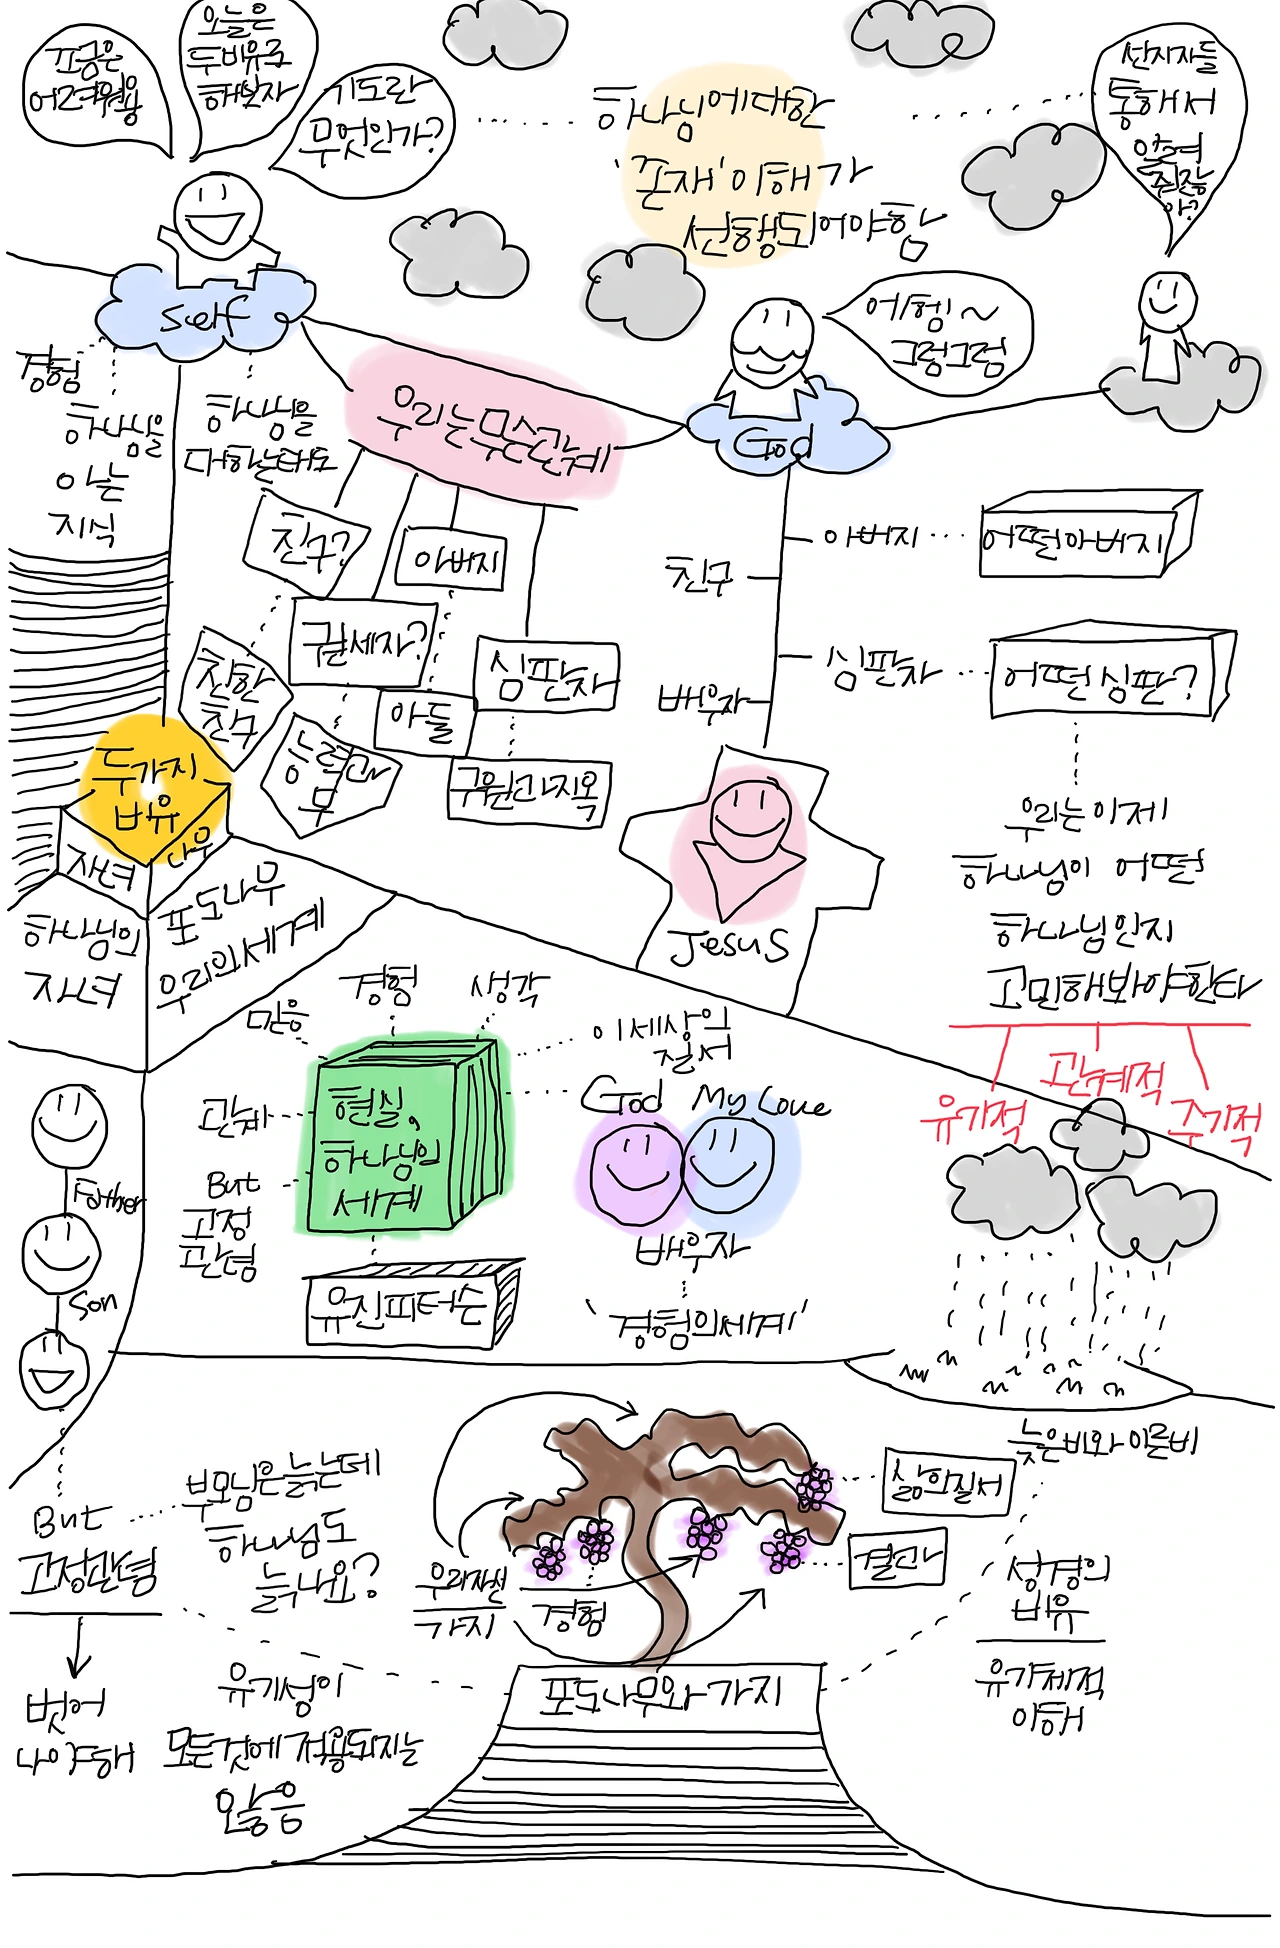 오늘은
두비유로
해보자
쪼금은
어려워용
기도란
무엇인가?
하나님에대한
'존재'이해가
선행되어야함
선지자들
통해서
알려
줬잖
아?
self
어험~
그럼그럼
God
경험
하나님을
아는
지식
하나님을
대하는태도
우리는무슨관계
친구?
아버지
구세자?
심판자
친한
친구
아들
능력과
무
구원과지옥
아버지
어떤아버지
친구
심판자
어떤심판?
배우자
Jesus
우리는이제
하나님이 어떤
하나님인지
고민해봐야한다
유기적
관계적
주기적
두가지
비유
자녀
나무
하나님의
자녀
포도나무
우리의세계
믿음
경험
생각
이세상의
질서
관계
But
고정
관념
현실,
하나님의
세계
유진피터슨
God
My Love
배우자
'경험의세계'
Father
Son
But
고정관념
벗어
나야해
부모님은늙는데
하나님도
늙나요?
유기성이
모든것에적용되지는
않음
우리자신
가지
경험
삶의질서
결과
포도나무와가지
늦은비와이른비
성경의
비유
유기체적
이해